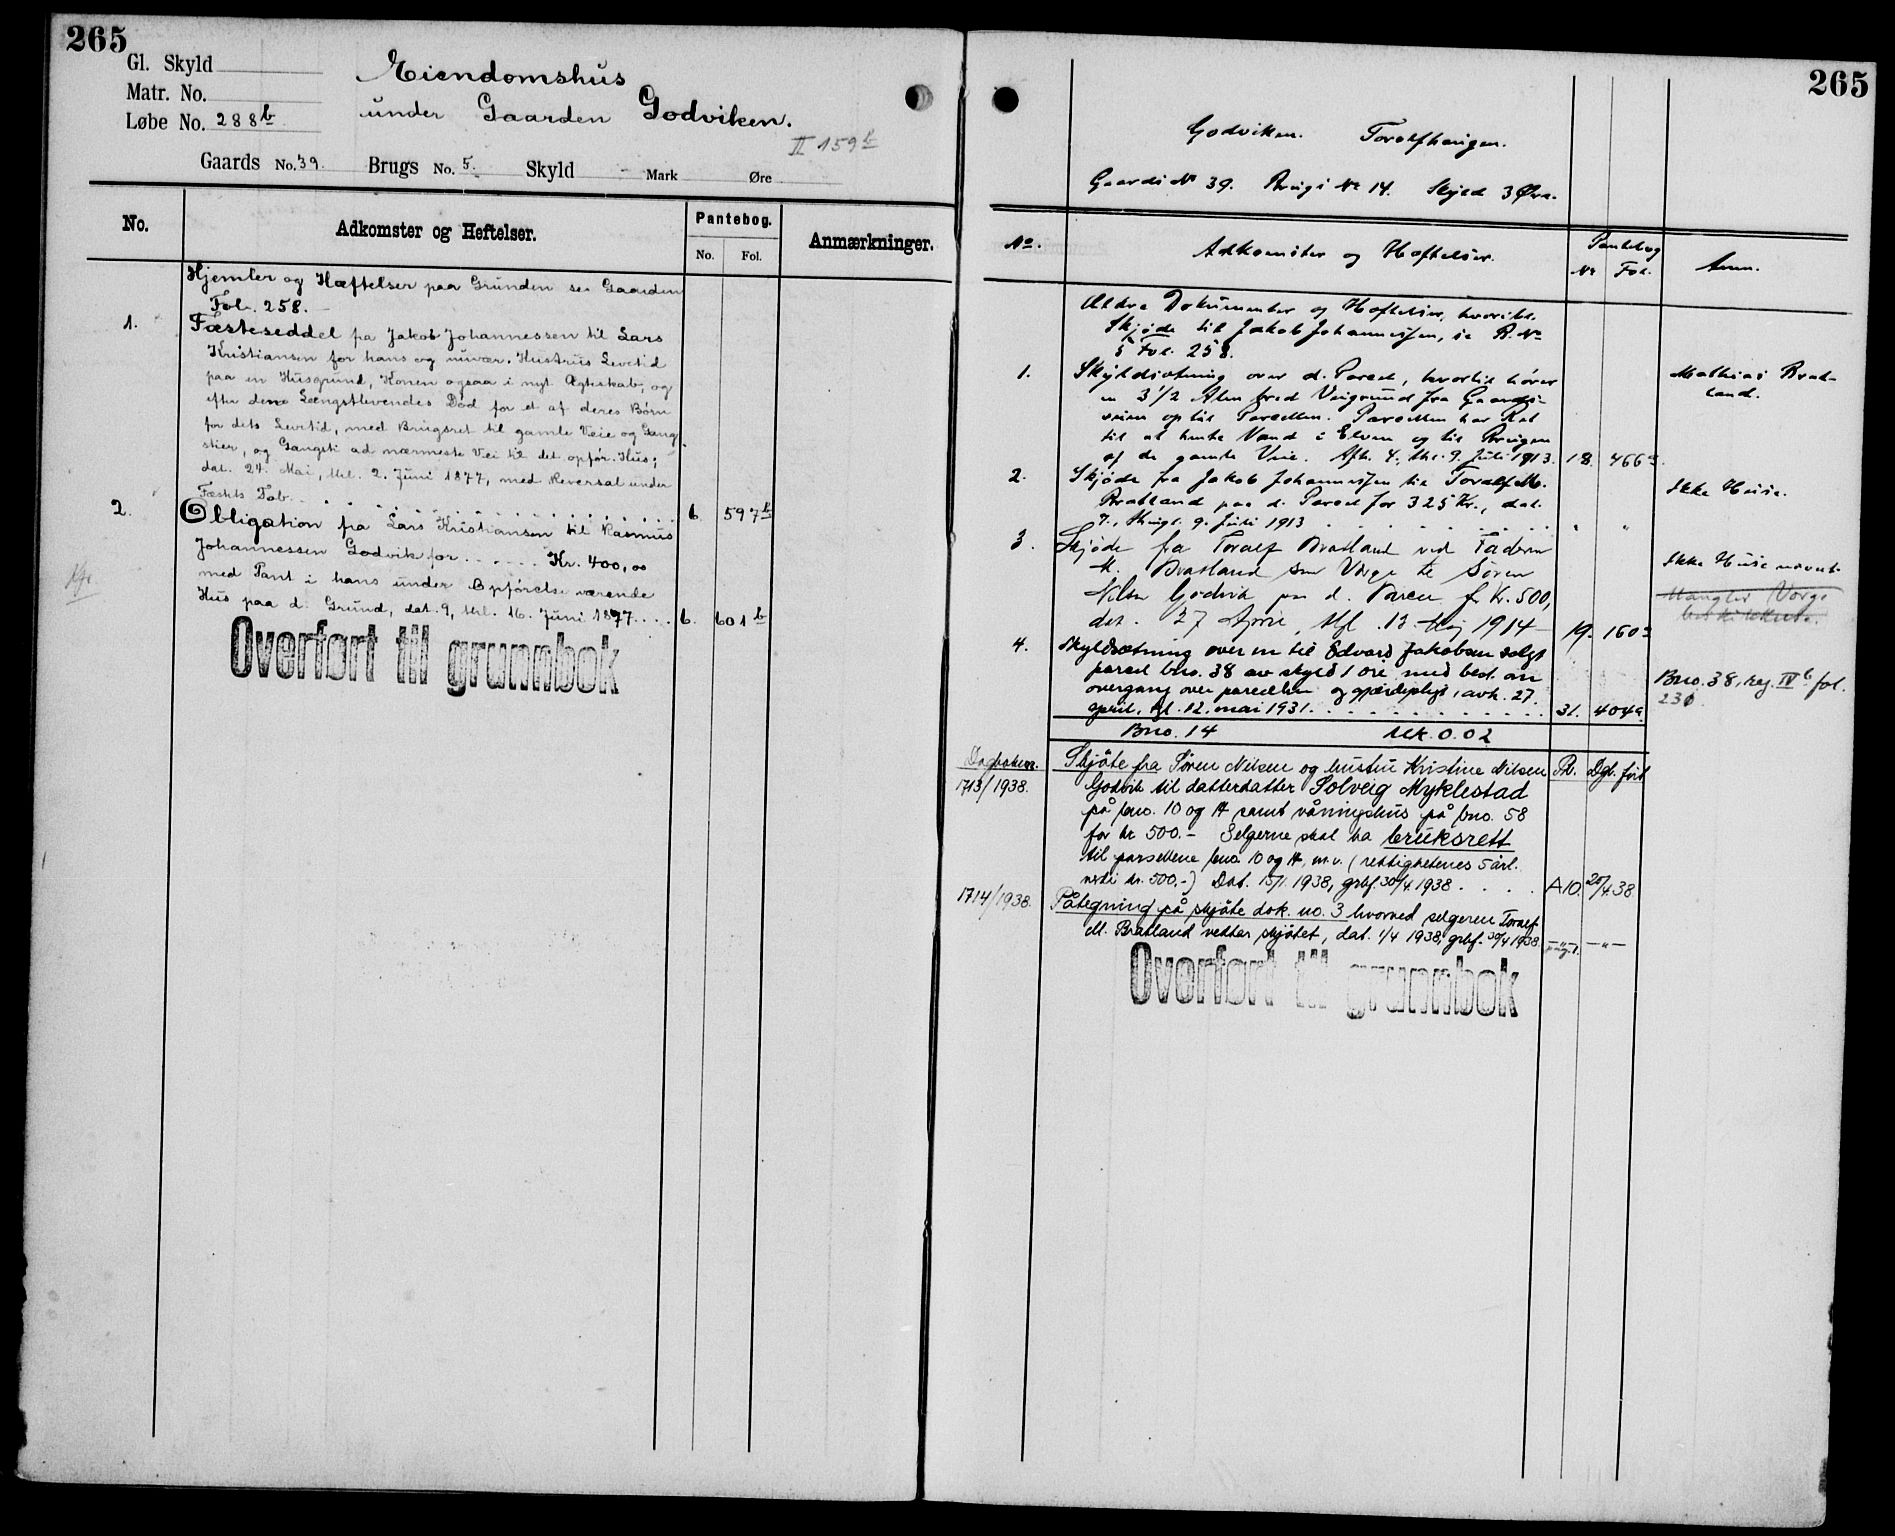 265
Gl. Skyld
Matr. No.
Løbe No. 288b
Eiendomshus
under Gaarden Godviken.
II 159b
Gaards No. 39. Brugs No. 5. Skyld Mark Øre
No. Adkomster og Heftelser. Pantebog. Anmærkninger.
No. Fol.
Hjemler og Hæftelser paa Grunden se Gaarden
Fol. 258.
1. Fæsteseddel fra Jakob Johannessen til Lars
Kristiansen for hans og nuvær. Hustrus Levetid
paa en Husgrund, Konen ogsaa i nyt Ægteskab, og
efter den Længstlevendes Død for et af deres Børn
for dets Levetid, med Brugsret til gamle Veie og Gang-
stier, og Gangsti ad nærmeste Vei til det opfør. Hus;
dat. 24. Mai, thl. 2. Juni 1877, med Reversal under
Fæstets Fol. 6. 597b
2. Obligation fra Lars Kristiansen til Rasmus
Johannessen Godvik for Kr. 400,00
med Pant i hans under Opførelse værende
Hus paa d. Grund, dat. 9, thl. 16. Juni 1877. 6. 601b
Overført til grunnbok
265
Godviken. Toralfhaugen.
Gaards No 39. Brugs No 14. Skyld 3 Øre.
No. Adkomster og Heftelser. Pantebog Anm.
No Fol.
Ældre Dokumenter og Heftelser, hvoribl.
Skjøde til Jakob Johannessen, se B. No
5 Fol. 258.
1. Skyldsætning over d. Parcel, hvortil hører
en 3 1/2 Alen bred Veigrund fra Gaards-
veien op til Parcellen. Parcellen har Ret
til at hente Vand i Elven og til Brugen
af de gamle Veie. Afh. 4., thl. 9. Juli 1913. 18. 466a
Mathias Brat-
land.
2. Skjøde fra Jakob Johannessen til Toralf M.
Bratland paa d. Parcel for 325 Kr., dat.
7., thingl. 9. Juli 1913 " "
Ikke Huse.
3. Skjøde fra Toralf Bratland ved Faderen
M. Bratland som Værge til Søren
Nilsen Godvik paa d. Parcel for Kr. 500,
dat. 27 April, thgl. 13 Maj 1914 19. 160a
Ikke Huse nævnt.
Mangler Værge
4. Skyldsætning over en til Edvard Jakobsen solgt
parcel bno. 38 av skyld 1 øre med best. om
overgang over parcellen og gjærdepligt, avh. 27.
april, tgl. 12. mai 1931. 31. 404a
Bno. 38, reg. IVb fol.
230
Bno. 14 Mk. 0.02
Dagboknr.
1713/1938. Skjøte fra Søren Nilsen og hustru Kristine Nilsen Pb. Dgb. ført
Godvik til datterdatter Solveig Myklestad
på bno. 10 og 14 samt våningshus på bno. 58
for kr 500.- Selgerne skal ha bruksrett
til parsellene bno. 10 og 14, m.v. (rettighetenes 5 årl.
verdi kr. 500.-) Dat. 15/1 1938, grbf. 30/4 1938. A10 20/4 38
1714/1938. Påtegning på skjøte dok. no. 3 hvorved selgeren Toralf
M. Bratland vedtar skjøtet, dat. 1/4 1938, grbf. 30/4 1938. -"- -"-
Overført til grunnbok